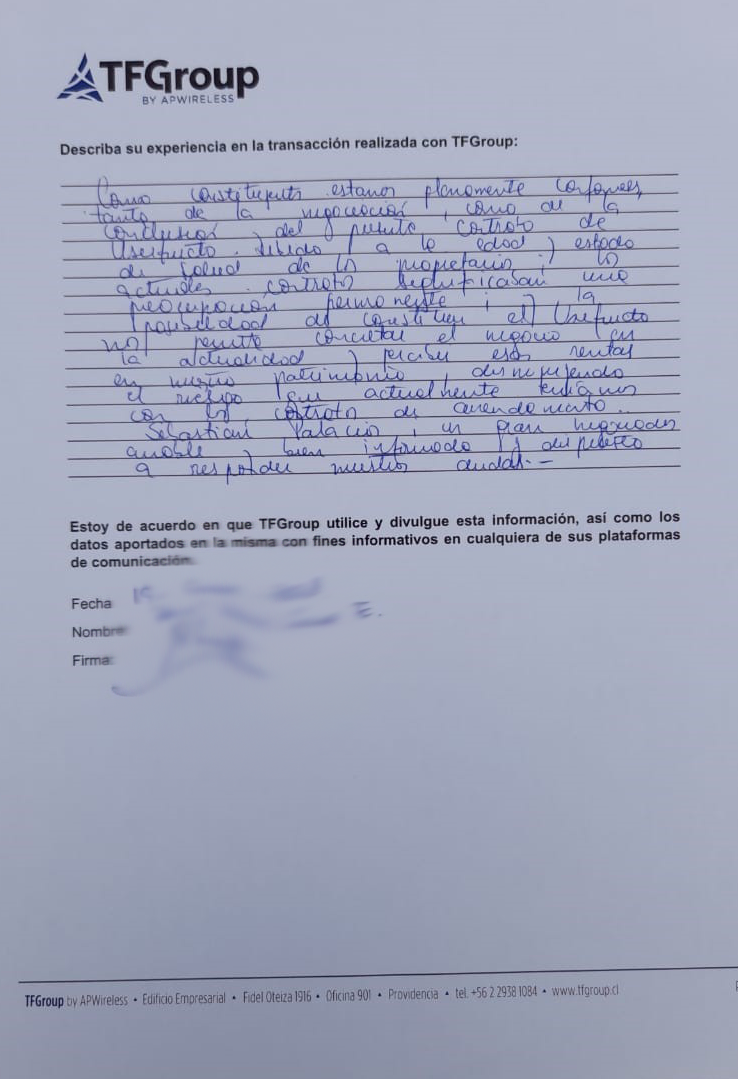 TFGroup
BY APWIRELESS
Describa su experiencia en la transacción realizada con TFGroup:
Como constituyents estamos plenamente conformes,
tanto de la negociación, como de la
conclusión y del presente contrato de
Usufructo. debido a la edad y estado
de salud de los propietarios; los
actuales contratos significaban una
preocupación permanente; y la
posibilidad de constituir el Usufructo
nos permite concretar el negocio en
la actualidad y percibir esas rentas
en nuestro patrimonio,
el riesgo que actualmente teníamos
con los contratos de arrendamiento.
Sebastián Palacios, un gran negociador
amable y bien informado y dispuesto
a responder nuestras dudas.-
Estoy de acuerdo en que TFGroup utilice y divulgue esta información, así como los
datos aportados en la misma con fines informativos en cualquiera de sus plataformas
de comunicación
Fecha
Nombre
Firma
TFGroup by APWireless • Edificio Empresarial • Fidel Oteiza 1916 • Oficina 901 • Providencia • tel. +56 2 2938 1084 • www.tfgroup.cl